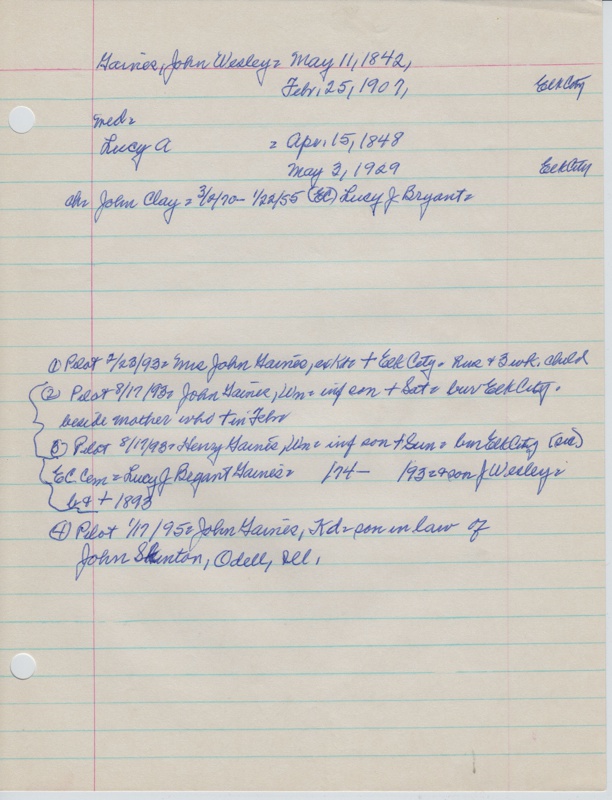 Gaines, John Wesley = May 11, 1842,
Febr. 25, 1907, Elk City
med =
Lucy A = Apr. 15, 1848
May 3, 1929 Elk City
ch = John Clay = 3/2/70 - 1/22/55 (EC) Lucy J. Bryant =
① Pilot 2/23/93 = Mrs John Gaines, Kd = + Elk City = hus + 3 wk. child
② Pilot 8/17/93 = John Gaines, Wm = inf son + Sat = bur Elk City =
beside mother who + in Febr
③ Pilot 8/17/93 = Henry Gaines, Wm = inf son + Sun = bur Elk City (sic)
EC Cem = Lucy J. Bryant Gaines = 174 - 193 = + son J Wesley =
b + + 1893
④ Pilot 1/17/95 = John Gaines, Kd = son in law of
John Shinton, Odell, Ill.